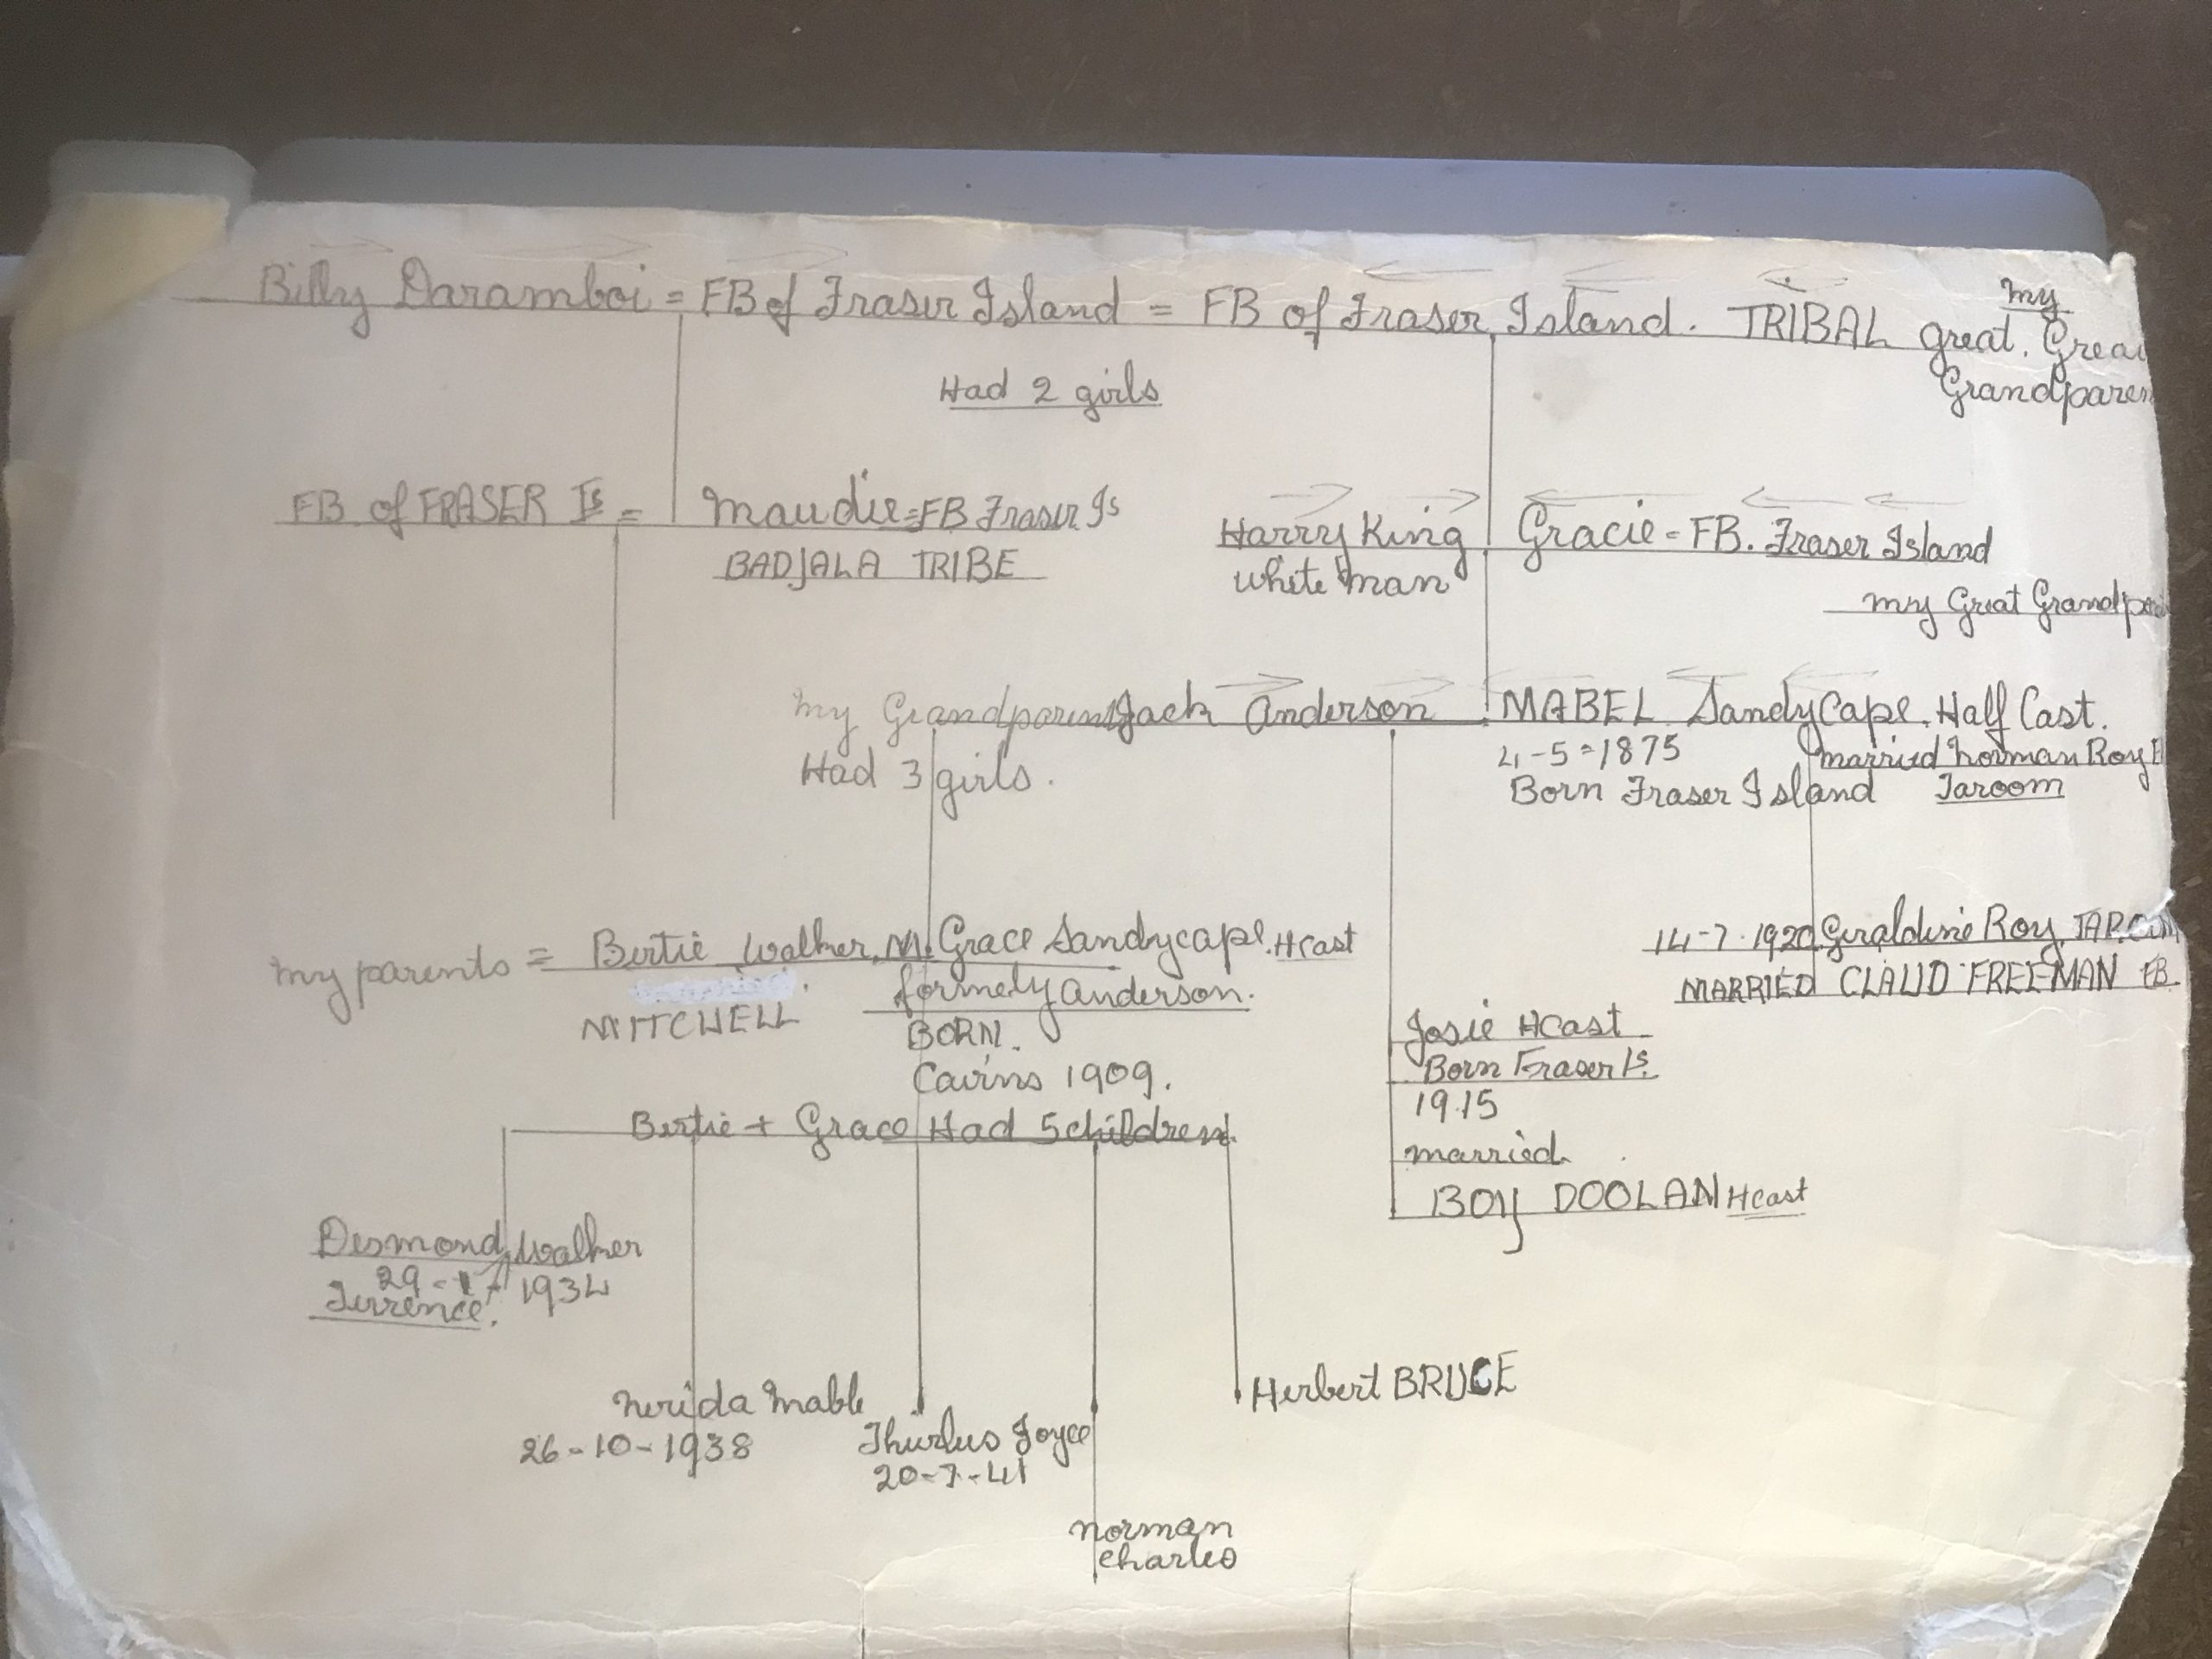 Billy Daramboi = FB of Fraser Island = FB of Fraser Island. TRIBAL
my
great. Great
Grandparen
Had 2 girls
FB of FRASER Is =
Maudie = FB Fraser Is
BADJALA TRIBE
Harry King
white man
Gracie = FB. Fraser Island
my Great Grandpa
my Grandparents Jack Anderson
Had 3 girls.
MABEL Sandy Cape. Half Cast.
4-5=1875
Born Fraser Island
married Norman Roy
Taroom
my parents = Bertie Walker. M. Grace Sandycape. Hcast
MITCHELL
formely Anderson.
BORN.
Cairns 1909.
14-7-1920 Geraldine Roy TAROOM
MARRIED CLAUD FREEMAN FB.
Josie Hcast
Born Fraser Is.
1915
married
BOY DOOLAN Hcast
Bertie + Grace Had 5 children.
Desmond Walker
29 - 1934
Terrence.
Nerida Mable
26-10-1938
Thurlus Joyce
20-7-41
Norman
Charles
Herbert BRUCE